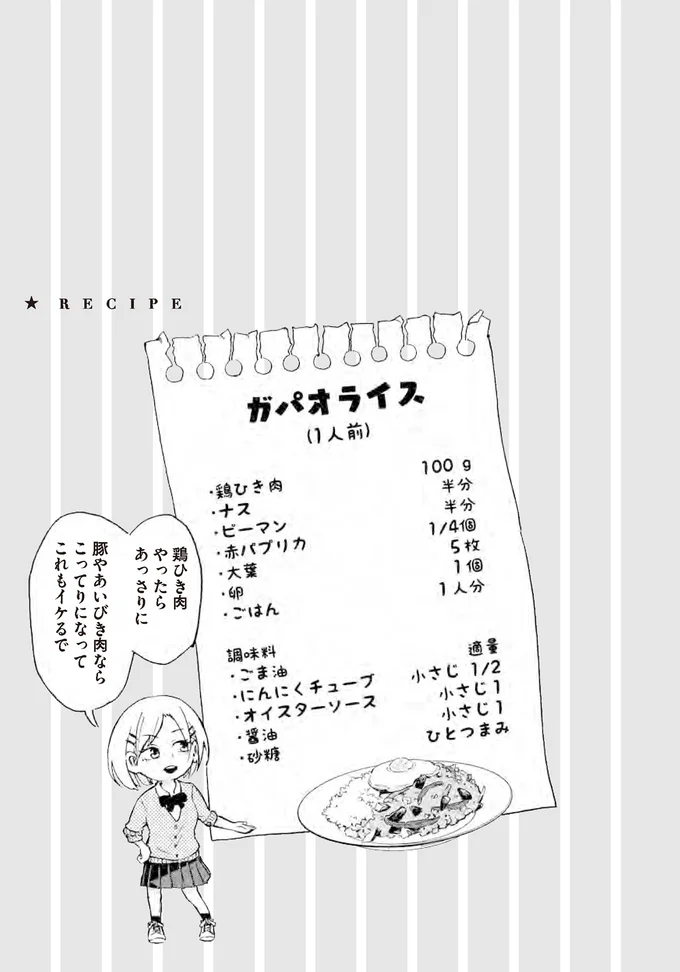 ★ RECIPE
ガパオライス
(1人前)
・鶏ひき肉 100 g
・ナス 半分
・ピーマン 半分
・赤パプリカ 1/4個
・大葉 5枚
・卵 1個
・ごはん 1人分
調味料
・ごま油 適量
・にんにくチューブ 小さじ 1/2
・オイスターソース 小さじ1
・醤油 小さじ1
・砂糖 ひとつまみ
鶏ひき肉
やったら
あっさりに
豚やあいびき肉なら
こってりになって
これもイケるで